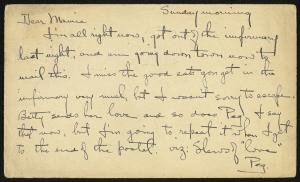 Sunday morning
Dear Mamma
I'm all right now, got out of the infirmary
last night, and am going down town now to
mail this. I miss the good eats you get in the
infirmary very much, but I wasn't sorry to escape.
Betty sends her love and so does Peg. I say
that now, but I'm going to repeat it when I get
to the end of the postal. viz: Slews of "love"
Peg.